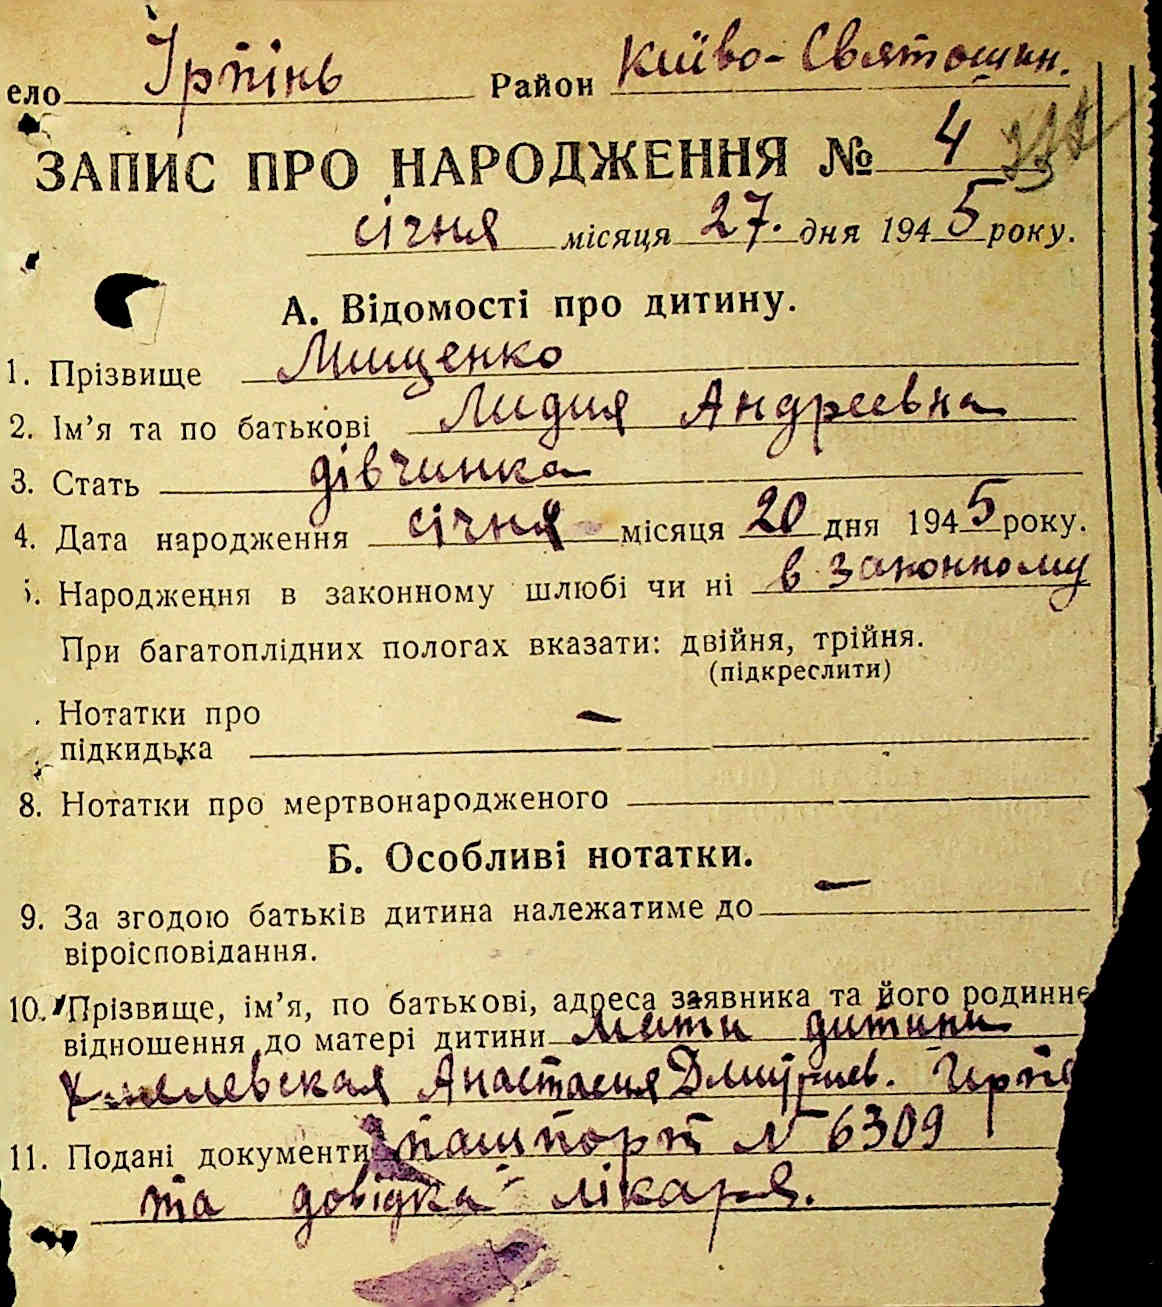 ело Ірпінь Район Київо-Святошин.
ЗАПИС ПРО НАРОДЖЕННЯ № 4
січня місяця 27. дня 1945 року.
А. Відомості про дитину.
1. Прізвище Мищенко
2. Ім'я та по батькові Лидия Андреевна
3. Стать дівчинка
4. Дата народження січня місяця 20 дня 1945 року.
Народження в законному шлюбі чи ні в законному
При багатоплідних пологах вказати: двійня, трійня.
(підкреслити)
Нотатки про —
підкидька
8. Нотатки про мертвонародженого
Б. Особливі нотатки.
9. За згодою батьків дитина належатиме до —
віроісповідання.
10. Прізвище, ім'я, по батькові, адреса заявника та його родинне
відношення до матері дитини мати дитини
Анастасия Дмитриев.
11. Подані документи пашпорт № 6309
та довідка лікаря.